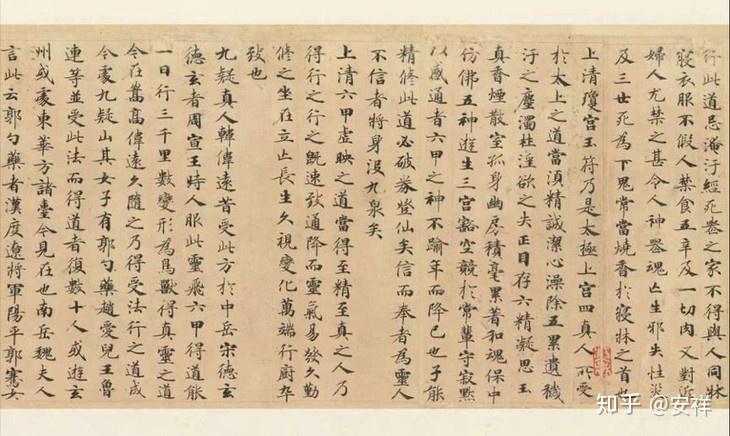 行此道忌淹汙經死喪之家不得與人同牀
寢衣服不假人禁食五辛及一切肉又對近
婦人尤禁之甚令人神喪魂亡生邪失性災
及三世死為下鬼常當燒香於寢牀之首也
上清瓊宮玉符乃是太極上宮四真人所受
於太上之道當須精誠潔心澡除五累遺穢
汙之塵濁杜淫欲之失正目存六精凝思玉
真香煙散室孤身幽房積毫累著和魂保中
仿佛五神遊生三宮豁空競於常輩守寂默
以感通者六甲之神不踰年而降已也子能
精修此道必破券登仙矣信而奉者為靈人
不信者將身沒九泉矣
上清六甲虛映之道當得至精至真之人乃
得行之行之既速致通降而靈氣易發久勤
修之坐在立亡長生久視變化萬端行廚卒
致也
九疑真人韓偉遠昔受此方於中岳宋德玄
德玄者周宣王時人服此靈飛六甲得道能
一日行三千里數變形為鳥獸得真靈之道
今在嵩高偉遠久隨之乃得受法行之道成
今處九疑山其女子有郭勺藥趙愛兒王魯
連等並受此法而得道者復數十人或遊玄
州或處東華方諸臺今見在也南岳魏夫人
言此云郭勺藥者漢度遼將軍陽平郭騫女
知乎 @安祥